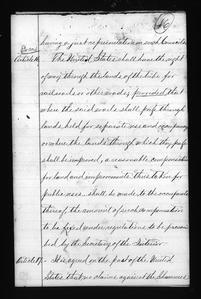 having a just representation in said Councils.
Article 16.
The United States shall have the right
of way through the lands of the tribe for
railroads or other roads, provided that
where the said roads shall pass through
lands held for separate use and occupancy
or where the lands through which they pass
shall be improved, a reasonable compensation
for land and improvements thus taken for
public uses, shall be made to the occupants
thereof, the amount of such compensation
to be fixed under regulations to be prescri-
bed by the Secretary of the Interior.
Article 17.
It is agreed on the part of the United
States that no claims against the Shawnees